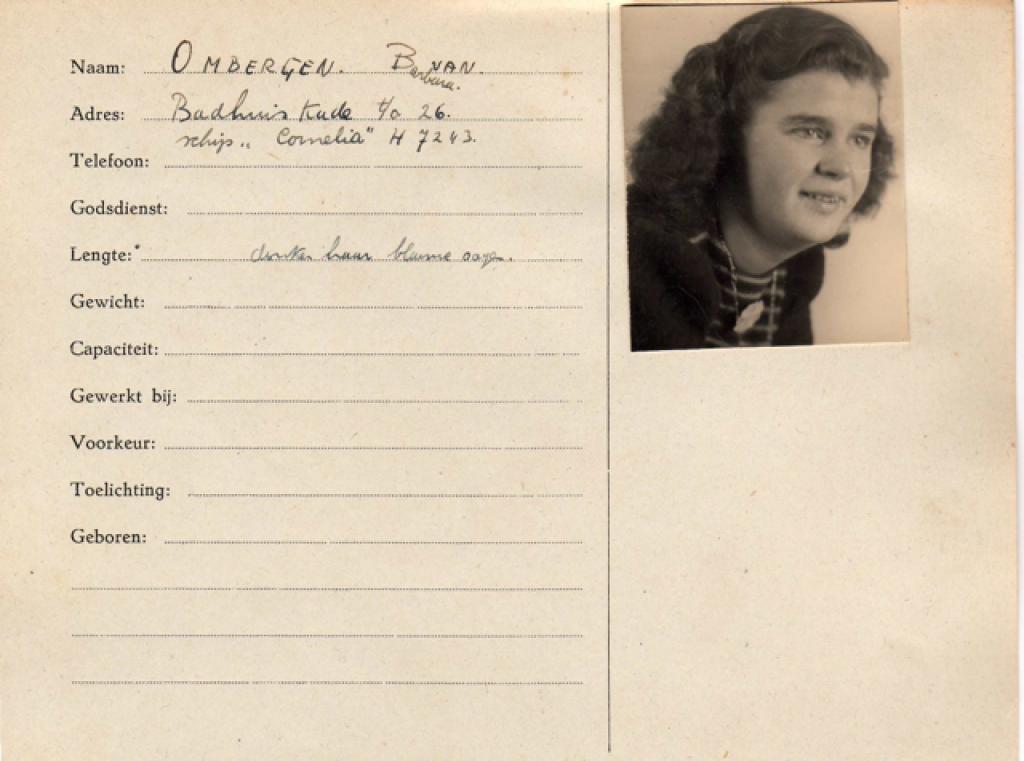 Naam: OMBERGEN. B. VAN.
Barbara.
Adres: Badhuis Kade t/o 26.
schip „ Cornelia" H 7243.
Telefoon:
Godsdienst:
Lengte: donker haar blauwe oogen.
Gewicht:
Capaciteit:
Gewerkt bij:
Voorkeur:
Toelichting:
Geboren: